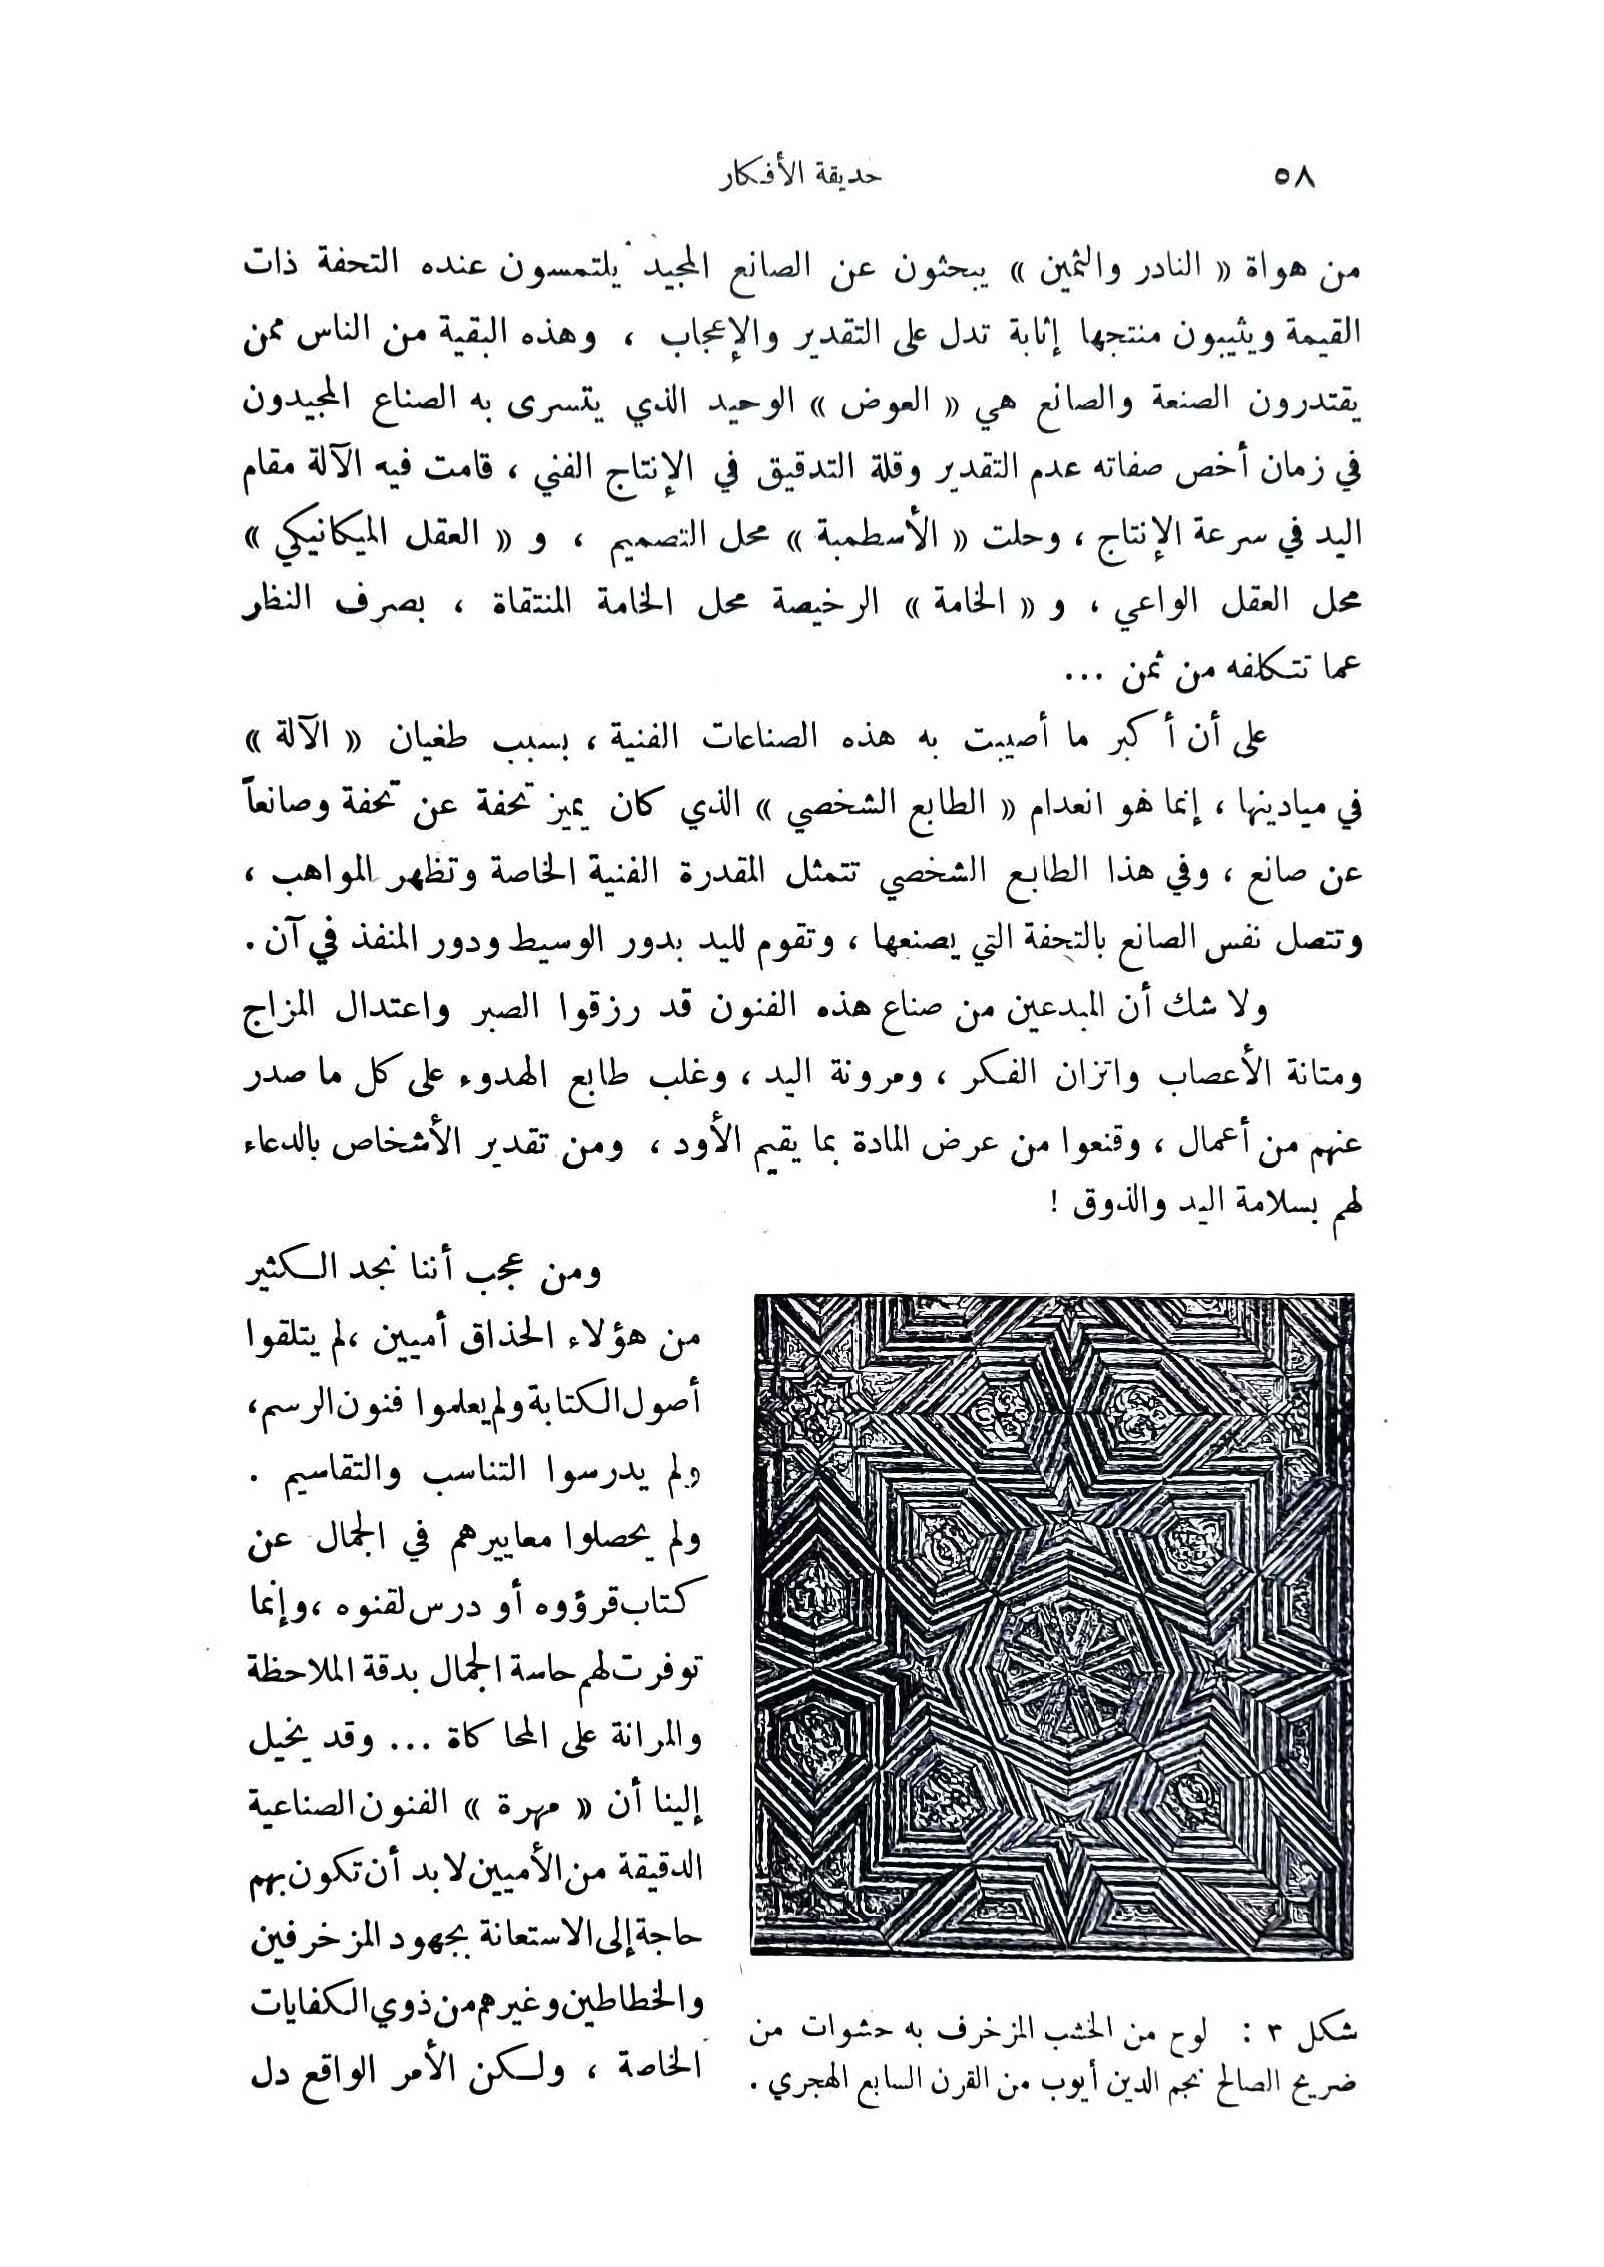 ٥٨
حديقة الأفكار
من هواة « النادر والثمين » يبحثون عن الصانع المجيد يلتمسون عنده التحفة ذات
القيمة ويثيبون منتجها إثابة تدل على التقدير والإعجاب ، وهذه البقية من الناس ممن
يقتدرون الصنعة والصانع هي « العوض » الوحيد الذي يتسرى به الصناع المجيدون
في زمان أخص صفاته عدم التقدير وقلة التدقيق في الإنتاج الفني ، قامت فيه الآلة مقام
اليد في سرعة الإنتاج ، وحلت « الأسطمبة » محل التصميم ، و « العقل الميكانيكي »
محل العقل الواعي ، و « الخامة » الرخيصة محل الخامة المنتقاة ، بصرف النظر
عما تتكلفه من ثمن ...
على أن أكبر ما أصيبت به هذه الصناعات الفنية ، بسبب طغيان « الآلة »
في ميادينها ، إنما هو انعدام « الطابع الشخصي » الذي كان يميز تحفة عن تحفة وصانعاً
عن صانع ، وفي هذا الطابع الشخصي تتمثل المقدرة الفنية الخاصة وتظهر المواهب ،
وتتصل نفس الصانع بالتحفة التي يصنعها ، وتقوم لليد بدور الوسيط ودور المنفذ في آن .
ولا شك أن المبدعين من صناع هذه الفنون قد رزقوا الصبر واعتدال المزاج
ومتانة الأعصاب واتزان الفكر ، ومرونة اليد ، وغلب طابع الهدوء على كل ما صدر
عنهم من أعمال ، وقنعوا من عرض المادة بما يقيم الأود ، ومن تقدير الأشخاص بالدعاء
لهم بسلامة اليد والذوق !
ومن عجب أننا نجد الكثير
من هؤلاء الحذاق أميين ، لم يتلقوا
أصول الكتابة ولم يعلموا فنون الرسم ،
ولم يدرسوا التناسب والتقاسيم .
ولم يحصلوا معاييرهم في الجمال عن
كتاب قرؤوه أو درس لقنوه ، وإنما
توفرت لهم حاسة الجمال بدقة الملاحظة
والمرانة على المحاكاة ... وقد يخيل
إلينا أن « مهرة » الفنون الصناعية
الدقيقة من الأميين لا بد أن تكون بهم
حاجة إلى الاستعانة بجهود المزخرفين
والخطاطين وغيرهم من ذوي الكفايات
الخاصة ، ولكن الأمر الواقع دل
شكل ٣ : لوح من الخشب المزخرف به حشوات من
ضريح الصالح نجم الدين أيوب من القرن السابع الهجري .